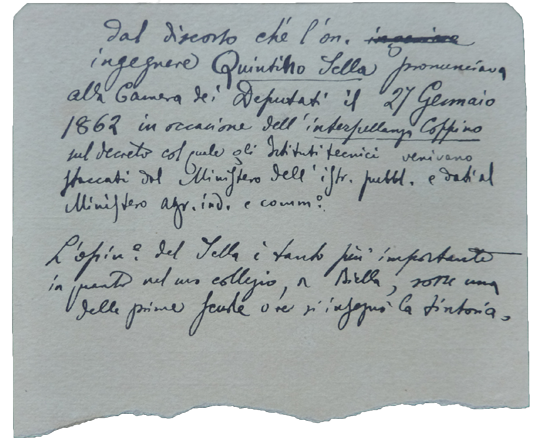 dal discorso che l'on. ingegnere
ingegnere Quintino Sella pronunciava
alla Camera dei Deputati il 27 Gennaio
1862 in occasione dell'interpellanza Coppino
sul decreto col quale gli Istituti tecnici venivano
staccati dal Ministero dell'istr. pubbl. e dati al
Ministero agr. ind. e comm.º
L'opin.º del Sella è tanto più importante
in quanto nel suo collegio, a Biella, sorse una
delle prime scuole ove si insegnò la tintoria.